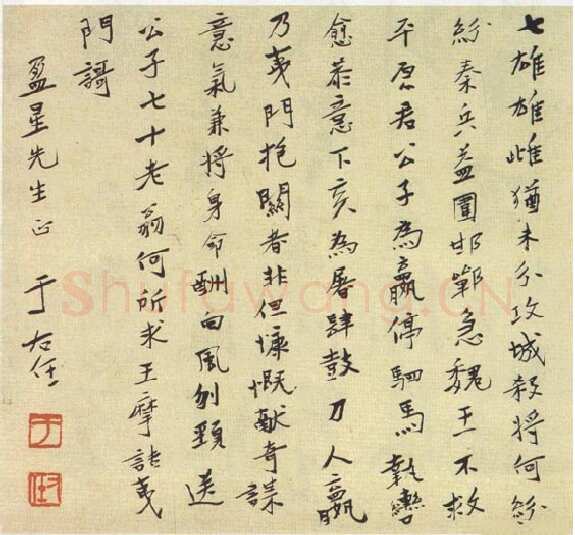 七雄雄雌猶未分攻城殺將何紛
紛秦兵益圍邯鄲急魏王不救
平原君公子為嬴停駟馬執轡
愈恭意下亥為屠肆鼓刀人嬴
乃夷門抱關者非但慷慨獻奇謀
意氣兼將身命酬向風刎頸送
公子七十老翁何所求王摩詰夷
門謌
盈星先生正
于右任
于
Shufawang.CN